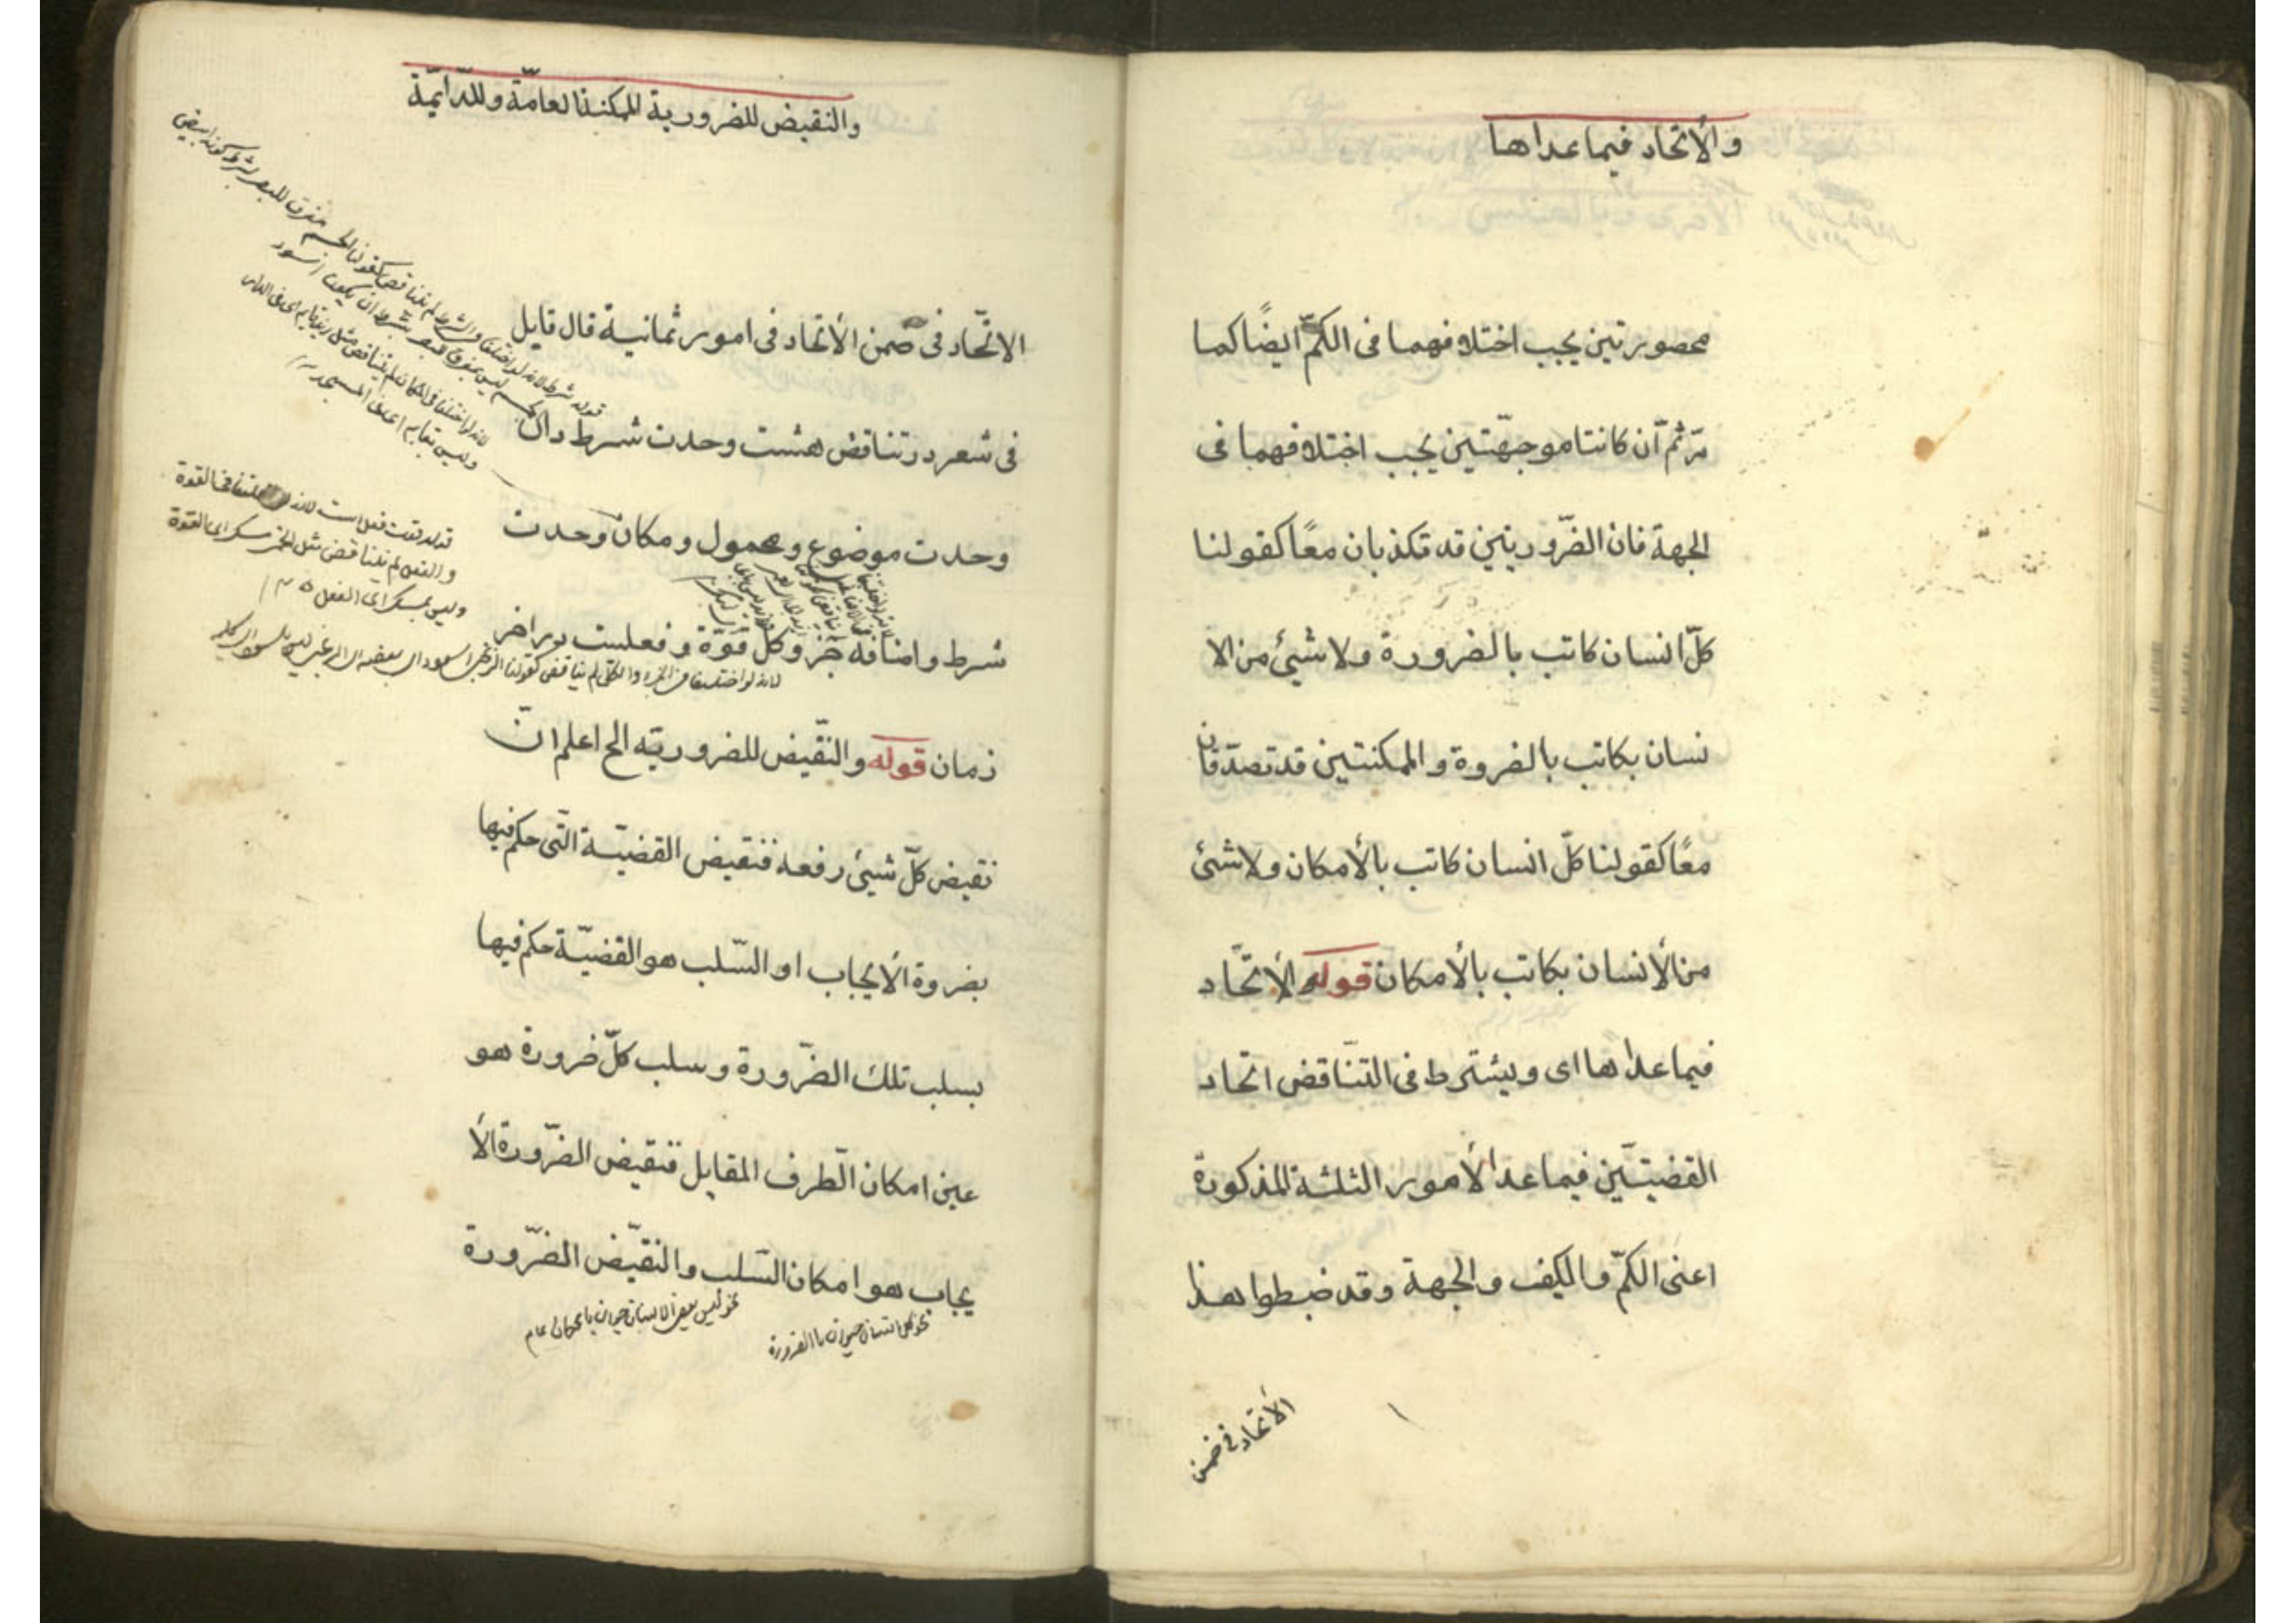 والأتحاد فيما عداها
محصورتين يجب اختلافهما فى الكمّ ايضًا كما
مرّ ثمّ ان كانتا موجهّتين يجب اختلافهما فى
الجهة فان الضّروريتين قد تكذبان معًا كقولنا
كلّ انسان كاتب بالضرورة ولا شيئ من الا
نسان بكاتب بالضروة والممكنتين قد تصدّقان
معًا كقولنا كلّ انسان كاتب بالأمكان ولا شئ
من الأنسان بكاتب بالأمكان قوله والأتحّاد
فيما عداها اى ويشترط فى التنّاقض اتحاد
القضيتيّن فيما عدا الأمور الثلثة المذكورة
اعنى الكمّ والكيف والجهة وقد ضبطوا هذا
الأتحاد فى ضمن
والنقيض للضرورية الممكنة العامّة وللدّايمّة
الاتحّاد فى ضمن الأتحاد فى امور ثمانية قال قايل
فى شعر در تناقض هشت وحدت شرط دان
وحدت موضوع ومحمول ومكان وحدت
شرط واضافة جزّ وكل قوّة وفعلست در اخر
زمان قوله والنقّيض للضروريّه الح اعلم انّ
نقيض كلّ شيئ رفعه فنقيض القضيّة التّى حكم فيها
بضروة الأيجاب او السّلب هو القضيّة حكم فيها
بسلب تلك الضّرورة وسلب كلّ ضرورة هو
عين امكان الطّرف المقابل فنقيض الضّرورة الأ
يجاب هو امكان السّلب والنقيّض الضّرورة
نحو كل انسان حيوان باالضرورة
نحو ليس بعض الانسان حيوان بامكان عام
قوله قوت فعل است لانه لو اختلفتا فى القوة
والفعل لم يتناقض مثل الخمر مسكر اى بالقوة
وليس بمسكر اى بالفعل
لانه لو اختلفتا فى الجزء والكل لم يتناقض كقولنا الزنجى اسود اى بعضه